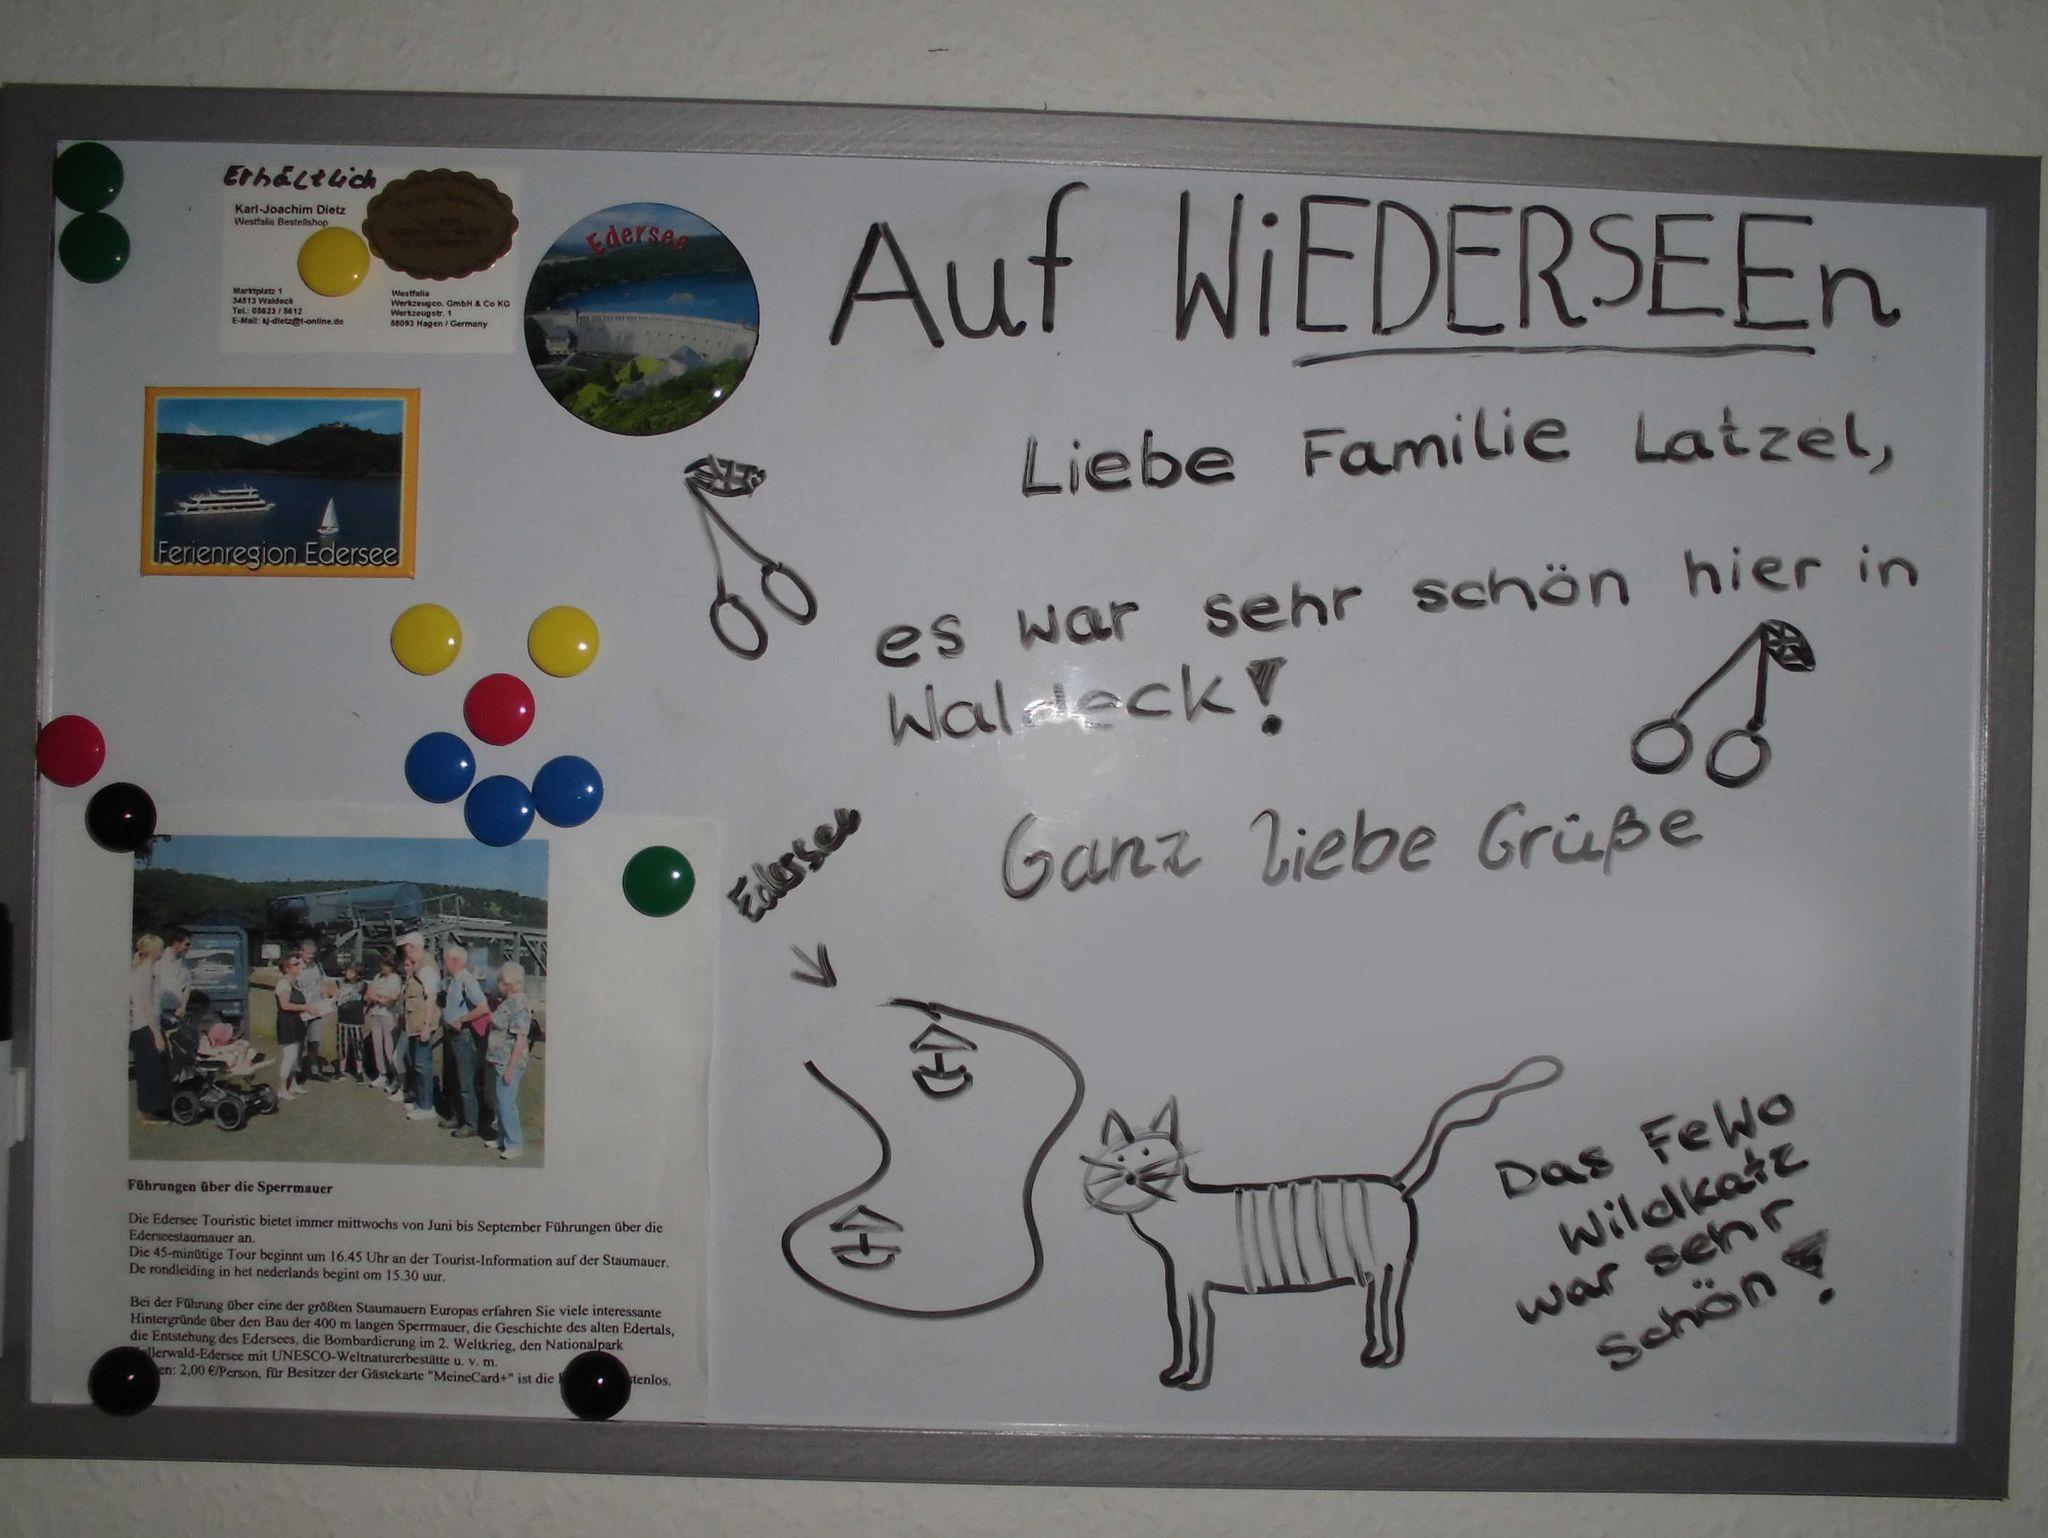 Erhältlich
Karl-Joachim Dietz
Westfalia Bestellshop
Marktplatz 1
34513 Waldeck
Tel.: 05623 / 5612
E-Mail: kj-dietz@t-online.de
Westfalia
Werkzeugco. GmbH & Co KG
Werkzeugstr. 1
58093 Hagen / Germany
Edersee
Ferienregion Edersee
Auf WiEDERSEEn
Liebe Familie Latzel,
es war sehr schön hier in
Waldeck!
Ganz liebe Grüße
Edersee
Das FeWo
Wildkatz
war sehr
schön!
Führungen über die Sperrmauer
Die Edersee Touristic bietet immer mittwochs von Juni bis September Führungen über die
Ederseestaumauer an.
Die 45-minütige Tour beginnt um 16.45 Uhr an der Tourist-Information auf der Staumauer.
De rondleiding in het nederlands begint om 15.30 uur.
Bei der Führung über eine der größten Staumauern Europas erfahren Sie viele interessante
Hintergründe über den Bau der 400 m langen Sperrmauer, die Geschichte des alten Edertals,
die Entstehung des Edersees, die Bombardierung im 2. Weltkrieg, den Nationalpark
llerwald-Edersee mit UNESCO-Weltnaturerbestätte u. v. m.
en: 2,00 €/Person, für Besitzer der Gästekarte "MeineCard+" ist die tenlos.